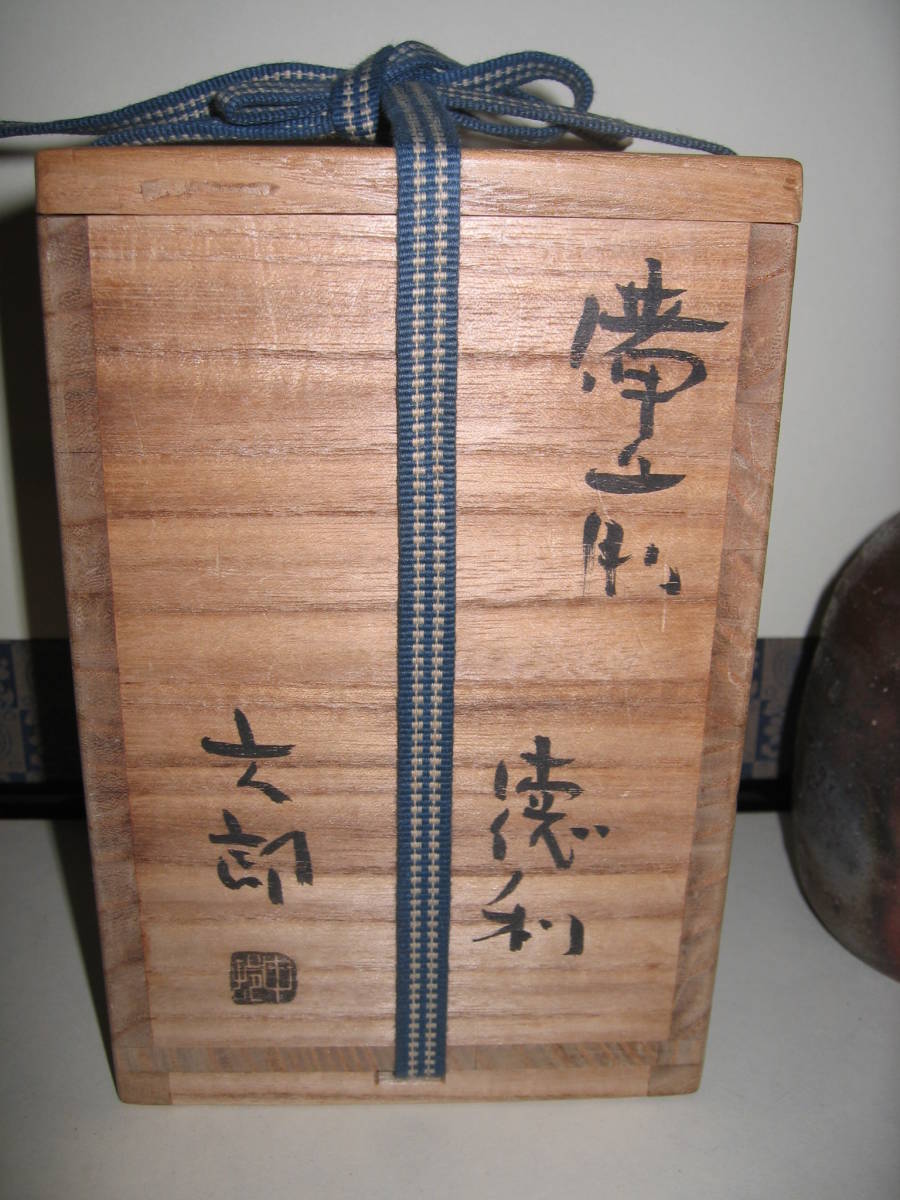 備前
徳利
六郎